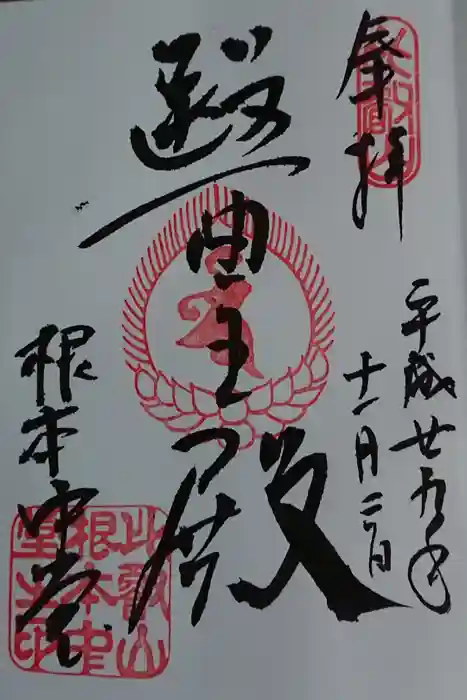 奉拝
平成廿九年
十一月二日
醫王殿
根本中堂
比叡山
根本中
堂之印